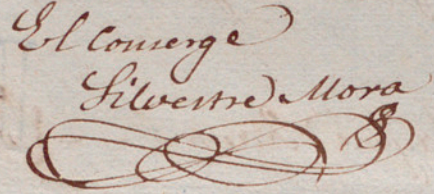 El Conserge
Silvestre Mora